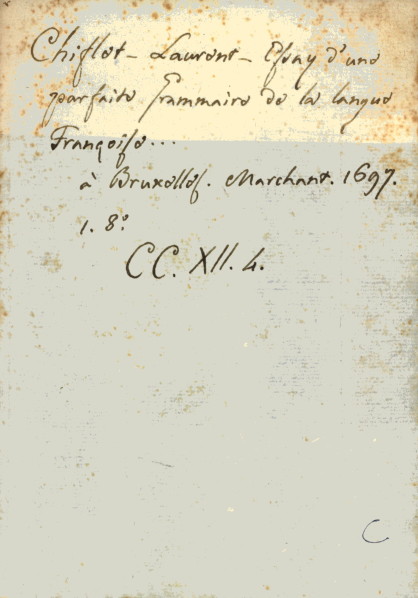 Chiflet - Laurent - Essay d'une
parfaite Grammaire de la langue
Françoise...
à Bruxelles. Marchant. 1697.
1. 8º
CC. XII. 4.
C